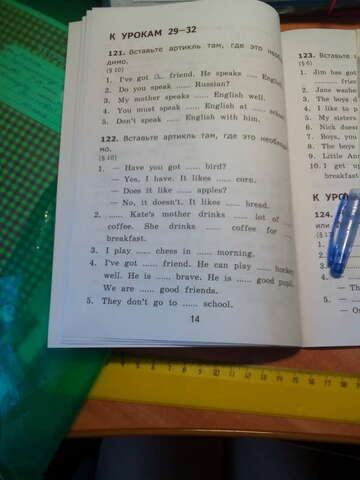 К УРОКАМ 29—32
121. Вставьте артикль там, где это необхо-
димо.
(§ 10)
1. I've got a friend. He speaks .... English
2. Do you speak ...... Russian?
3. My mother speaks ...... English well.
4. You must speak ..... English at ...... school.
5. Don't speak ...... English with him.
122. Вставьте артикль там, где это необходи-
мо.
(§ 10)
1. — Have you got ...... bird?
— Yes, I have. It likes ...... corn.
— Does it like ...... apples?
— No, it doesn't. It likes ...... bread.
2. ...... Kate's mother drinks ...... lot of
coffee. She drinks ...... coffee for ......
breakfast.
3. I play ...... chess in ...... morning.
4. I've got ...... friend. He can play ...... hockey
well. He is ...... brave. He is ...... good pupil.
We are ...... good friends.
5. They don't go to ...... school.
14
123.
(§ 6)
1. Jim has go
2. Jane washe
3. The boys
4. I like to p
5. My sisters
6. Nick does
7. Boys, you
8. The boys
9. Little Ann
10. I get up
breakfast
К УРО
124.
или
1.
2.
3.
4.
— Th
5.